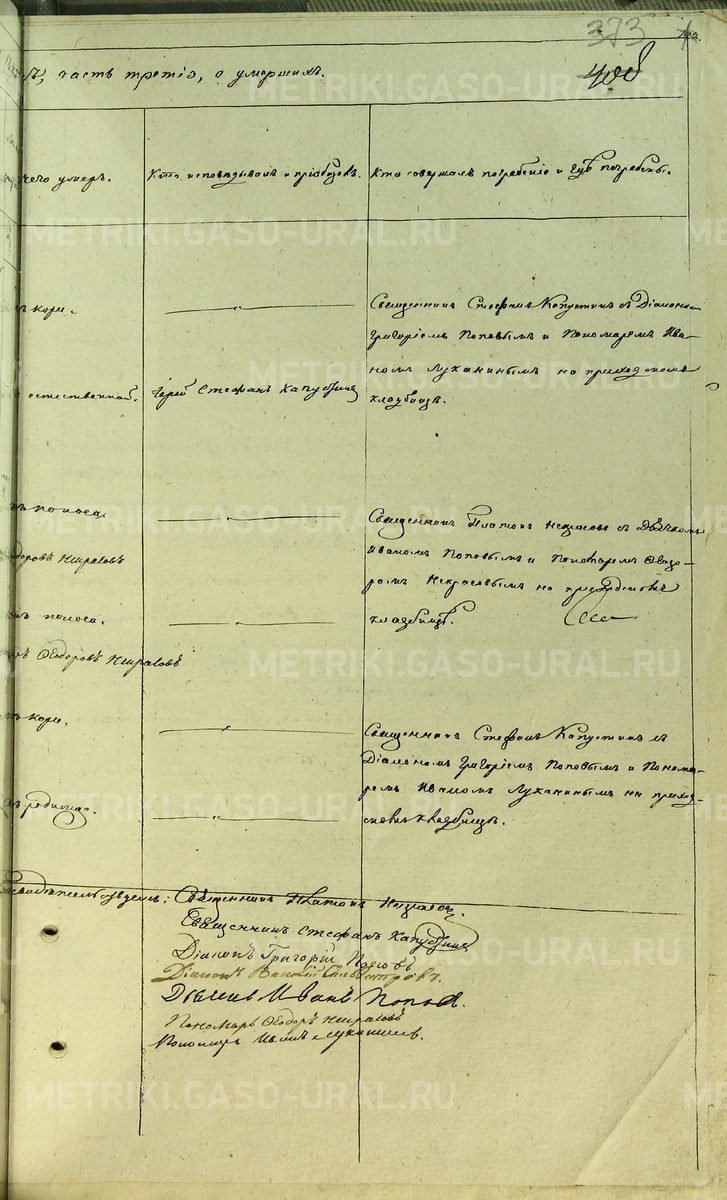 373
ъ, часть третія, о умершихъ.
408
чего умеръ.
Кто исповѣдывалъ и пріобщалъ.
Кто совершалъ погребеніе и гдѣ погребены.
кори.
Священникъ Стефанъ Капустинъ съ Діакономъ
Григоріемъ Поповымъ и Пономаремъ Ива-
номъ Луканинымъ на приходскомъ
естественной.
Іерей Стефанъ Капустинъ
кладбищѣ.
поноса
Священникъ Платонъ Некрасовъ съ Дьячкомъ
Иваномъ Поповымъ и Пономаремъ Ѳедо-
доровъ Некрасовъ
ромъ Некрасовымъ на
поноса.
кладбищѣ.
Ѳеодоровъ Некрасовъ
кори.
Священникъ Стефанъ Капустинъ съ
Діакономъ Григоріемъ Поповымъ и Понома-
ремъ Иваномъ Луканинымъ на приход-
родимца.
скомъ кладбищѣ.
Священникъ Платонъ Некрасовъ
Священникъ Стефанъ Капустинъ
Діаконъ Григорій Поповъ
Діаконъ Василій Сильвестровъ.
Дьячекъ Иванъ Поповъ.
Пономарь Ѳеодоръ Некрасовъ
Пономарь Иванъ Луканинъ.
METRIKI.GASO-URAL.RU